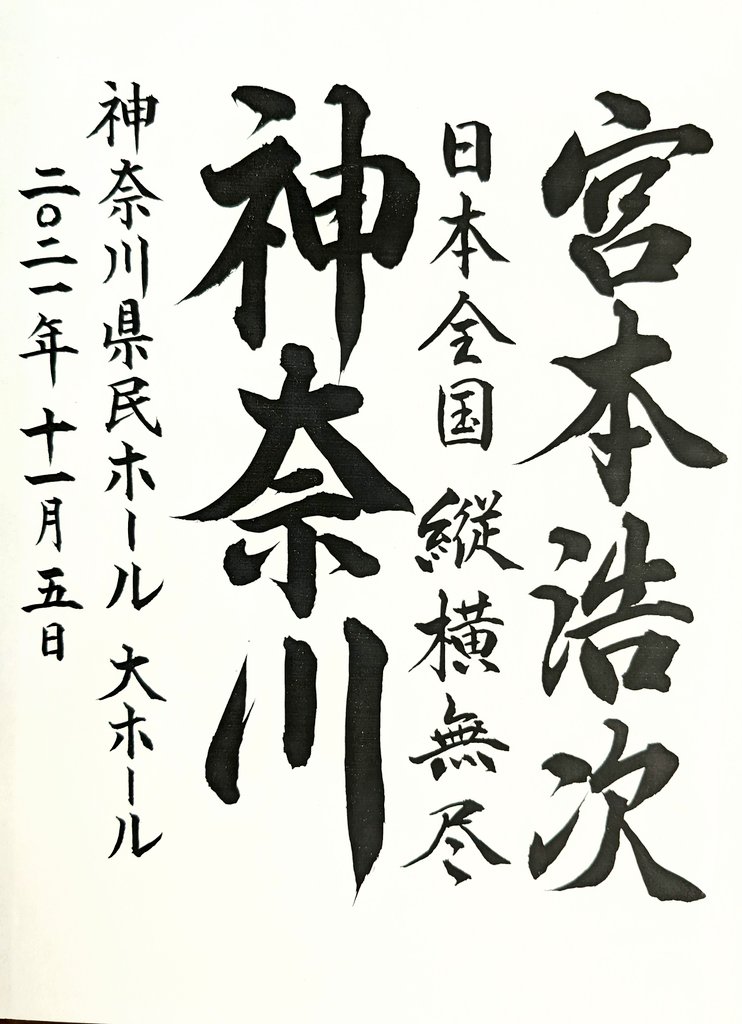 宮本浩次
日本全国 縦横無尽
神奈川
神奈川県民ホール 大ホール
二〇二一年 十一月 五日